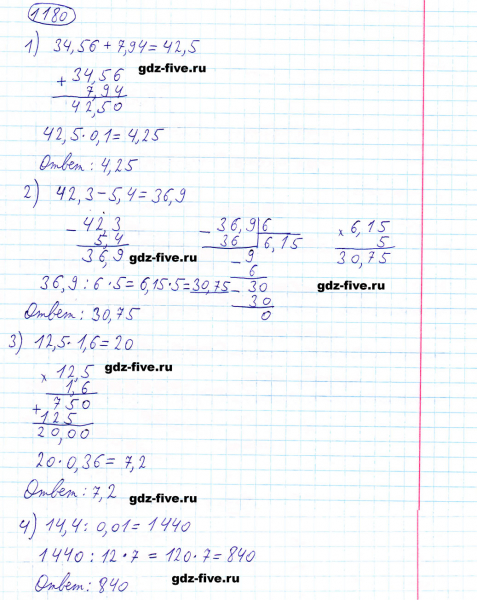 1180
1) 34,56 + 7,94 = 42,5
gdz-five.ru
+ 34,56
7,94
42,50
42,5 · 0,1 = 4,25
Ответ: 4,25
2) 42,3 - 5,4 = 36,9
- 42,3
5,4
36,9
gdz-five.ru
- 36,9 | 6
36 | 6,15
- 9
6
- 30
30
0
× 6,15
5
30,75
gdz-five.ru
36,9 : 6 · 5 = 6,15 · 5 = 30,75
Ответ: 30,75
3) 12,5 · 1,6 = 20
gdz-five.ru
× 12,5
1,6
+ 750
125
20,00
20 · 0,36 = 7,2
Ответ: 7,2
gdz-five.ru
4) 14,4 : 0,01 = 1440
1440 : 12 · 7 = 120 · 7 = 840
Ответ: 840
gdz-five.ru